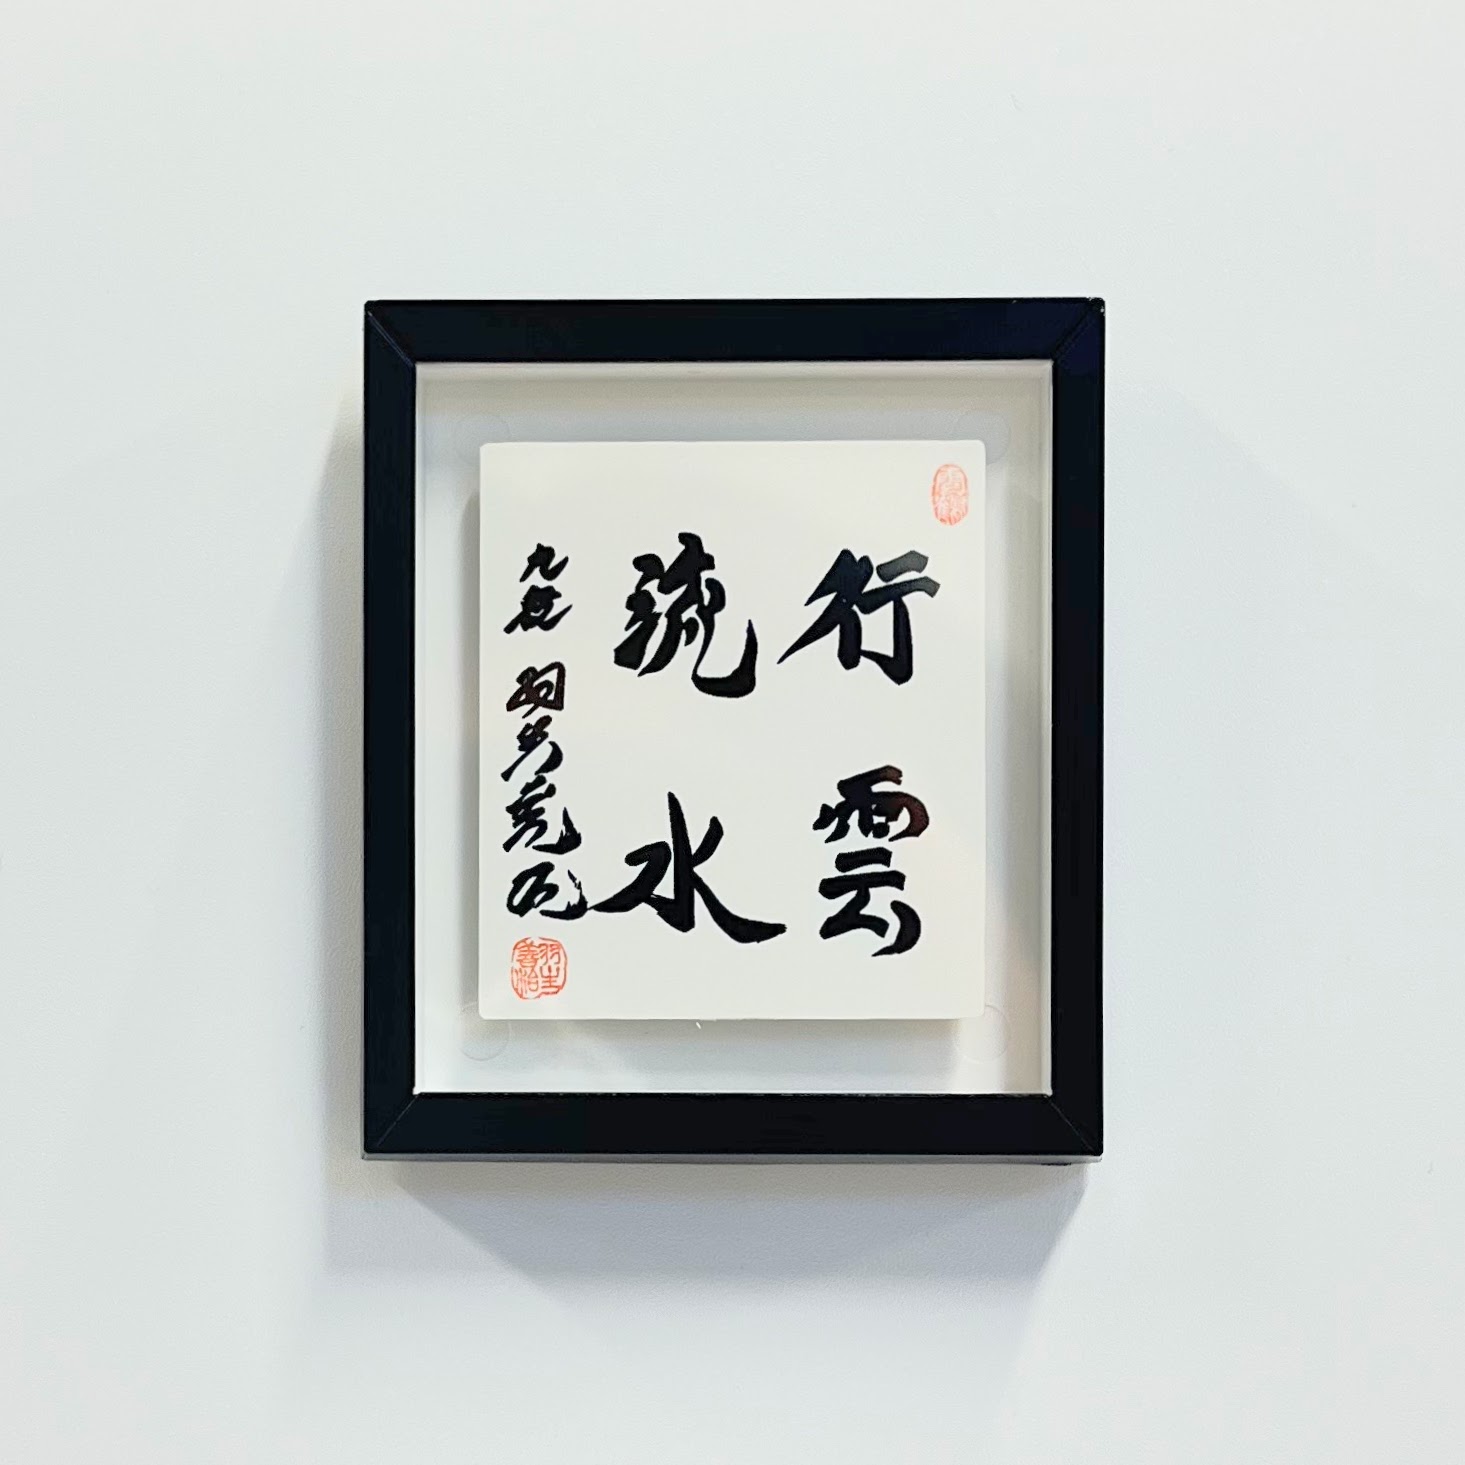 行雲
流水
九段 羽生善治
羽生
善治